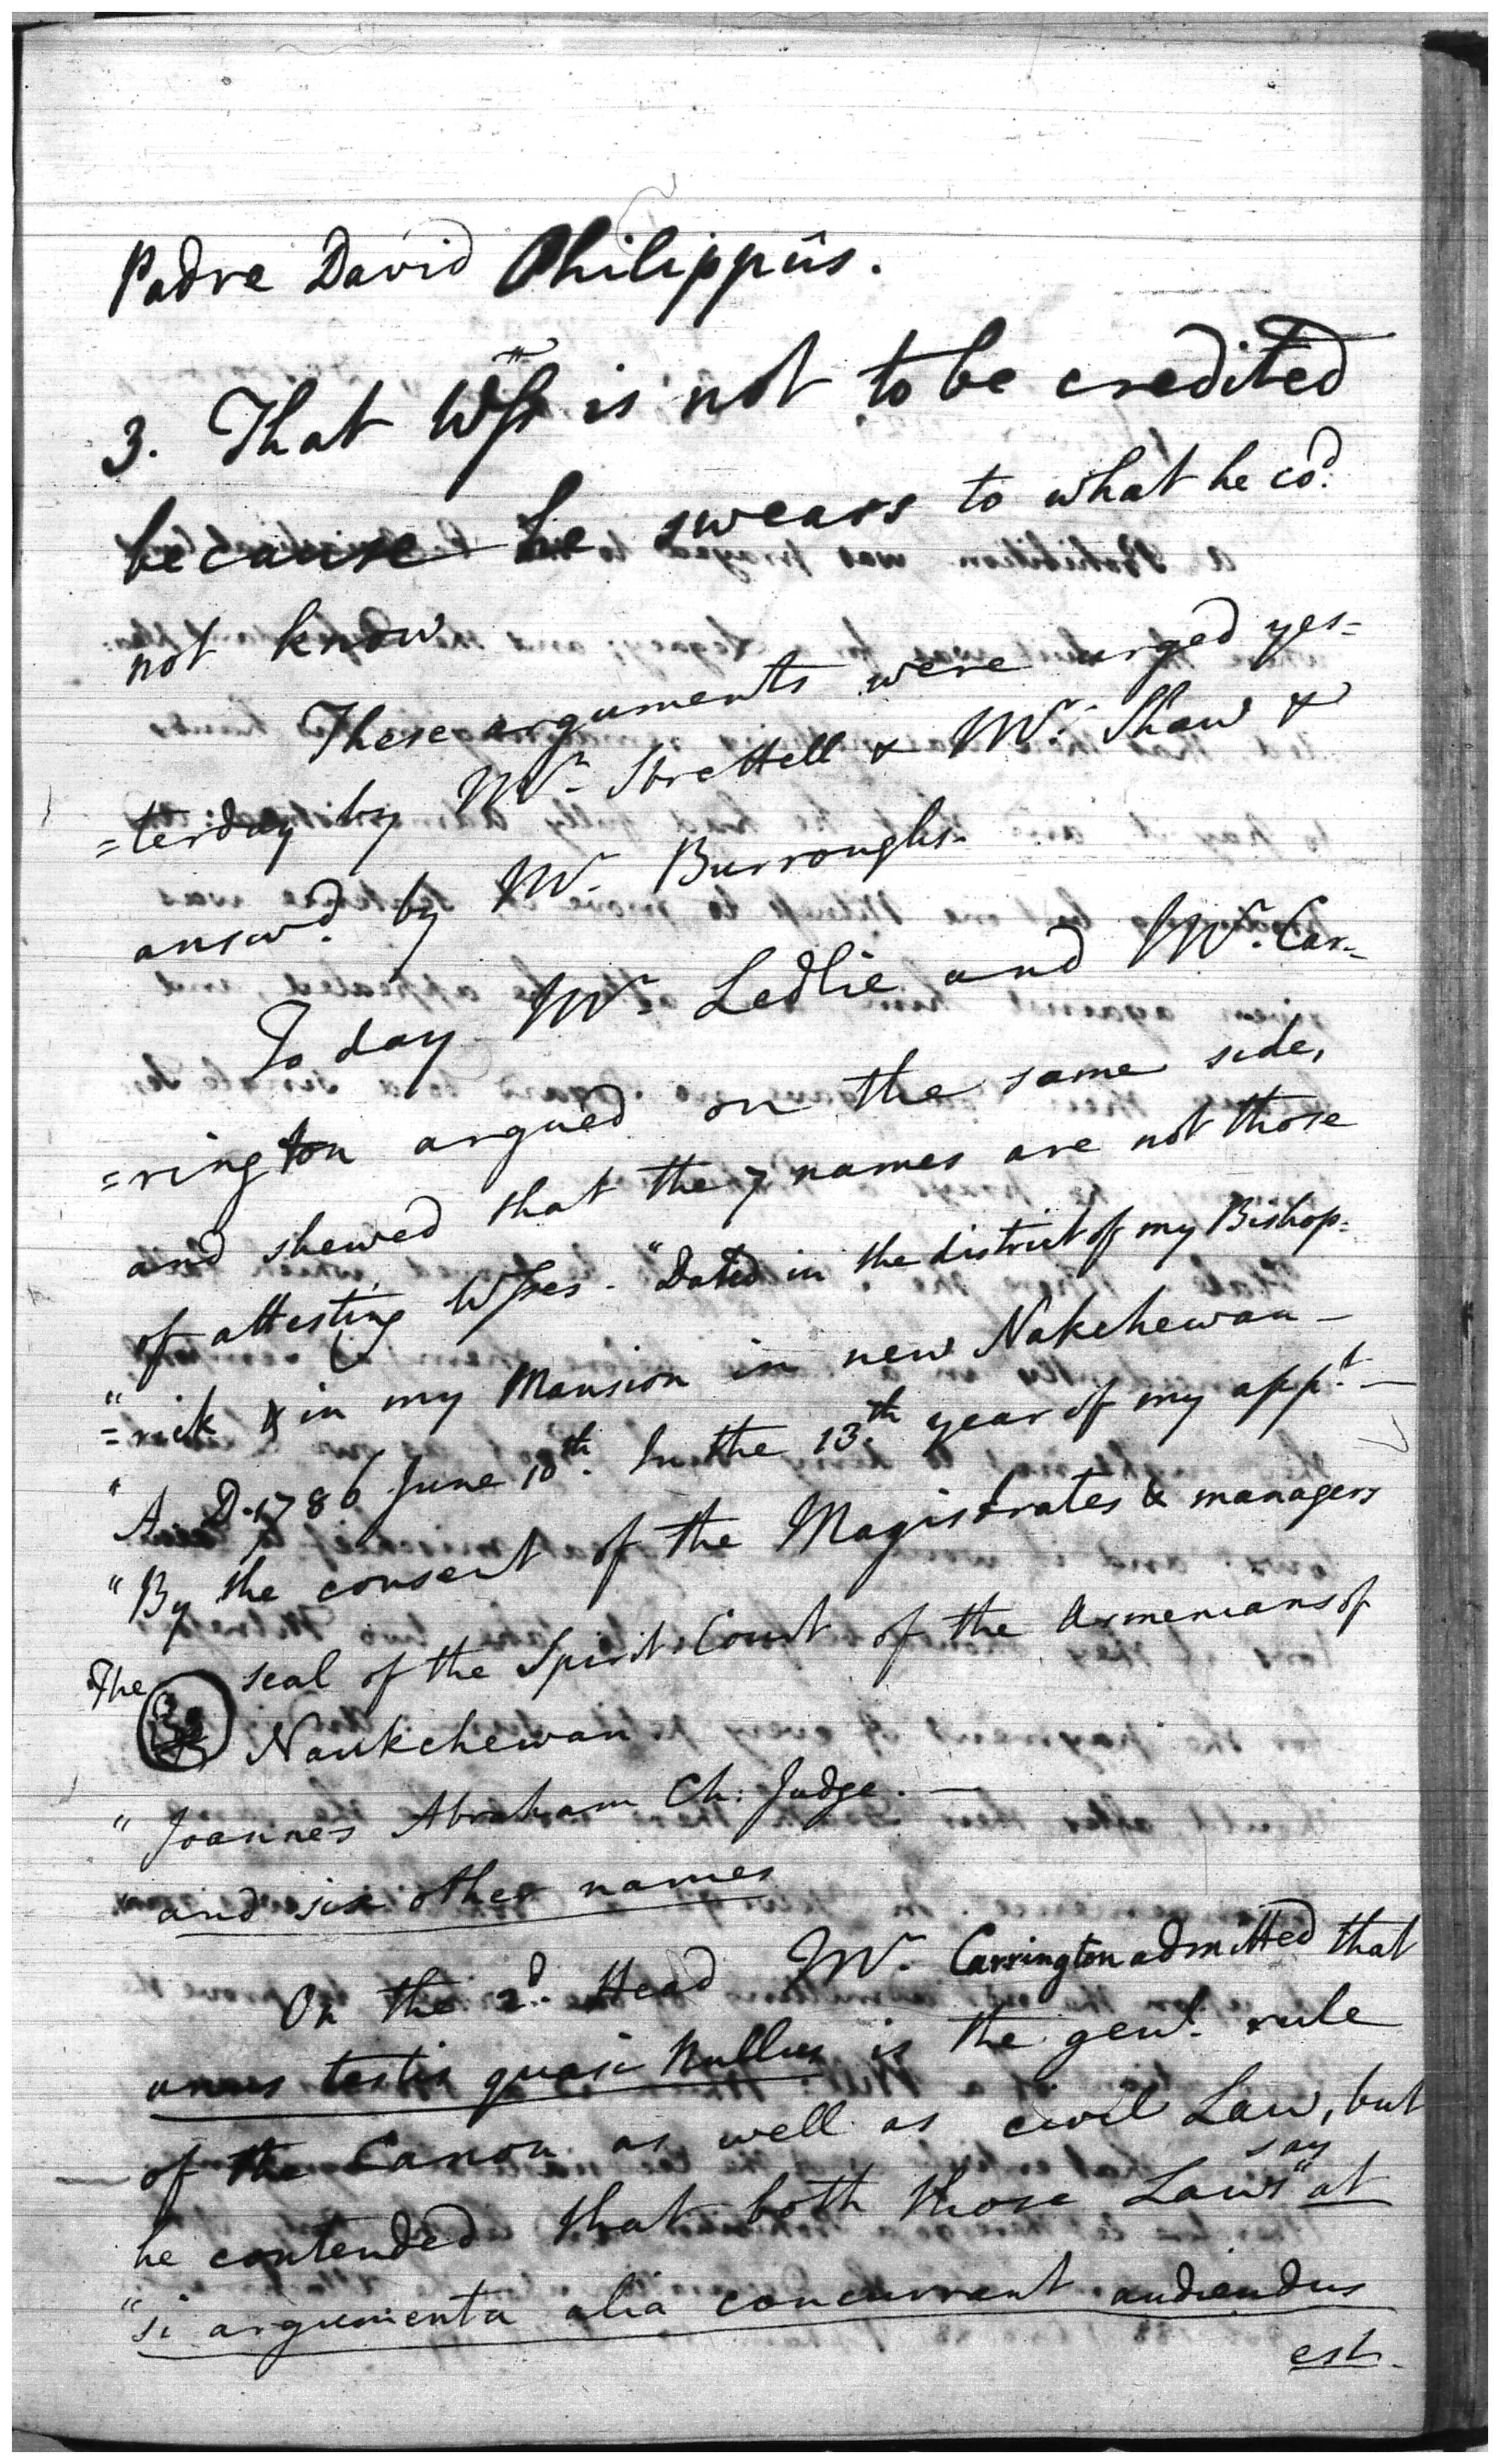 Padre David Philippûs.
3. That Wss is not to be credited
because he swears to what he cod.
not know
These arguments were urged yes=
=terday by Mr. Strettell & Mr. Shaw &
answd. by Mr. Burroughs.
To day Mr. Ledlie and Mr. Car-
=rington argued on the same side,
and shewed that the 7 names are not those
of attesting Wsses. "Dated in the district of my Bishop=
"=rick & in my Mansion in new Nakchewan —
" A. D. 1786 June 10th. In the 13th. year of my appt. —
"By the consent of the Magistrates & managers
The seal of the Spirit: Court of the Armenians of
Naukchewan.
" Joannes Abraham Ch: Judge. —
"and six other names
On the 2d. Head Mr. Carrington admitted that
unus testis quasi nullus is the genl. rule
of the Canon as well as civil Law, but
he contended that both those Laws say "at
"si argumenta alia concurrant audiendus
est.